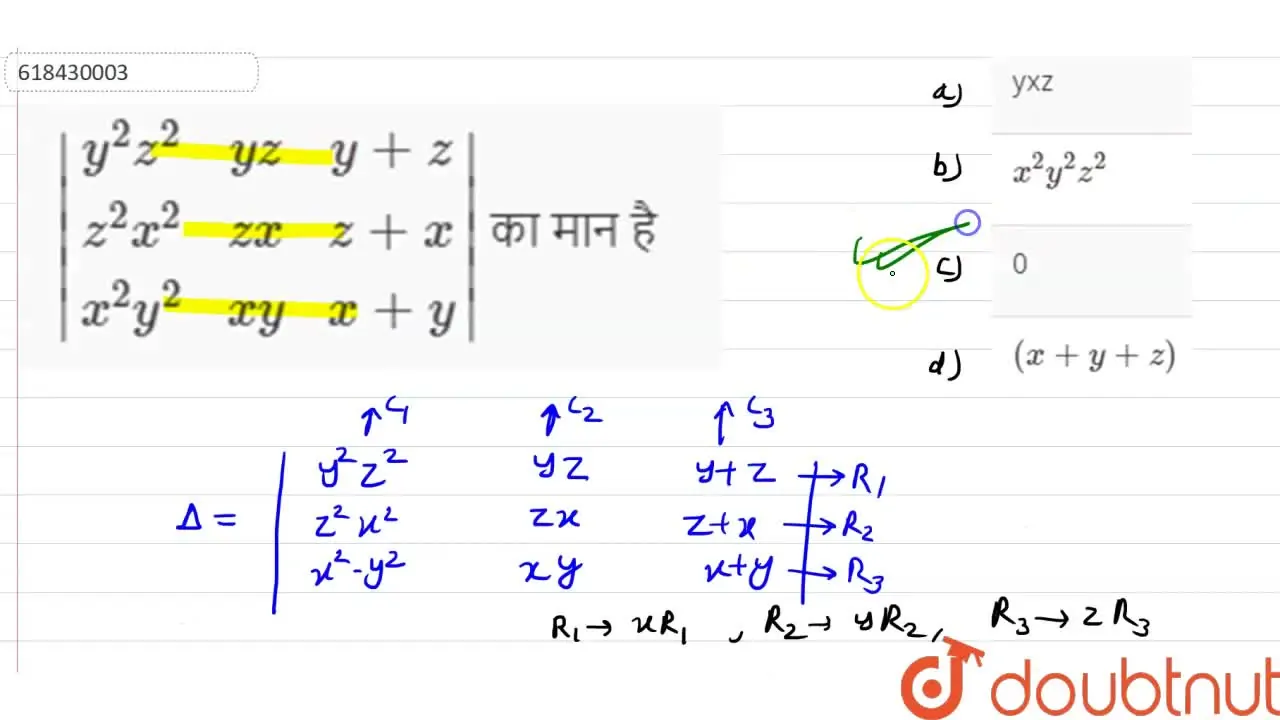 618430003
y²z² yz y + z
z²x² zx z + x का मान है
x²y² xy x + y
a) yxz
b) x²y²z²
c) 0
d) (x + y + z)
↑ C₁ ↑ C₂ ↑ C₃
y² z² yz y+z → R₁
Δ = z² x² zx z+x → R₂
x² - y² xy x+y → R₃
R₁ → xR₁ , R₂ → yR₂, R₃ → zR₃
doubtnut